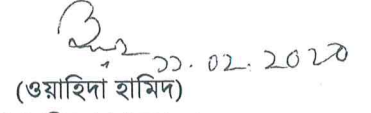 ১১.০২.2020
(ওয়াহিদা হামিদ)